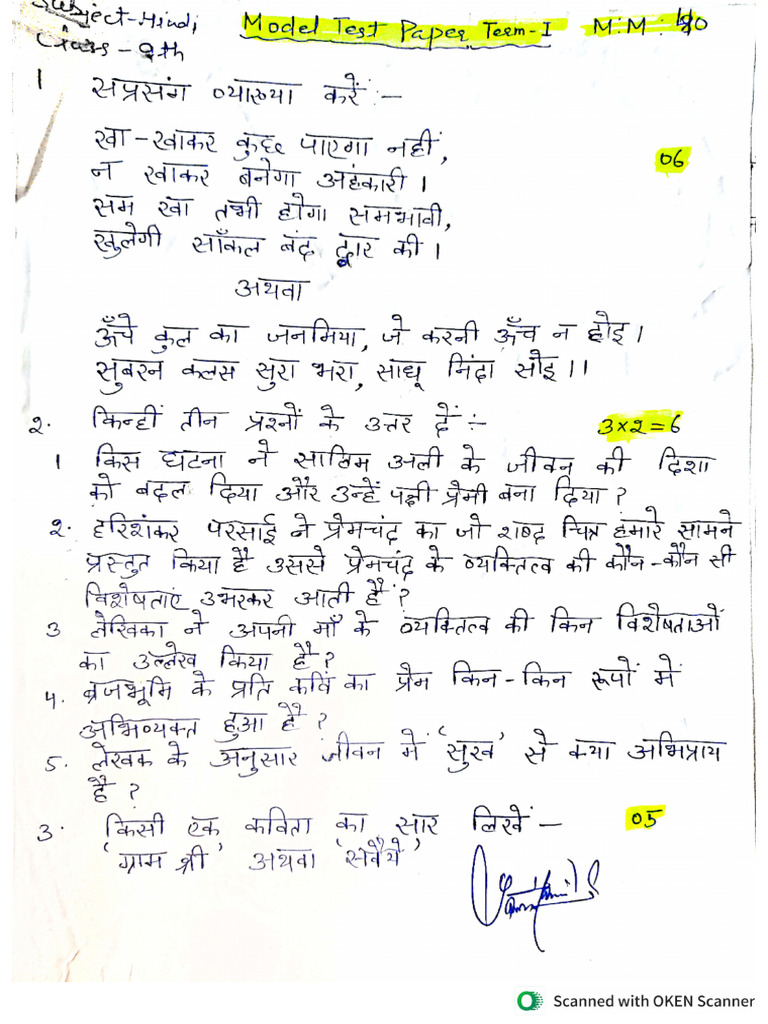 Subject-Hindi Model Test Paper Term-I M.M: 40
Class-9th
1 सप्रसंग व्याख्या करें:-
खा-खाकर कुछ पाएगा नहीं,
06
न खाकर बनेगा अहंकारी।
सम खा तभी होगा समभावी,
खुलेगी साँकल बंद द्वार की।
अथवा
ऊँचे कुल का जनमिया, जे करनी ऊँच न होइ।
सुबरन कलस सुरा भरा, साधू निंदा सोइ।।
२. किन्हीं तीन प्रश्नों के उत्तर दें:- 3×2=6
1 किस घटना ने सालिम अली के जीवन की दिशा
को बदल दिया और उन्हें पक्षी प्रेमी बना दिया?
२. हरिशंकर परसाई ने प्रेमचंद का जो शब्द चित्र हमारे सामने
प्रस्तुत किया है उससे प्रेमचंद के व्यक्तित्व की कौन-कौन सी
विशेषताएं उभरकर आती हैं?
3 लेखिका ने अपनी माँ के व्यक्तित्व की किन विशेषताओं
का उल्लेख किया है?
4. ब्रजभूमि के प्रति कवि का प्रेम किन-किन रूपों में
अभिव्यक्त हुआ है?
5. लेखक के अनुसार जीवन में 'सुख' से क्या अभिप्राय
है?
3. किसी एक कविता का सार लिखें- 05
'ग्राम श्री' अथवा 'सवैये'
Scanned with OKEN Scanner